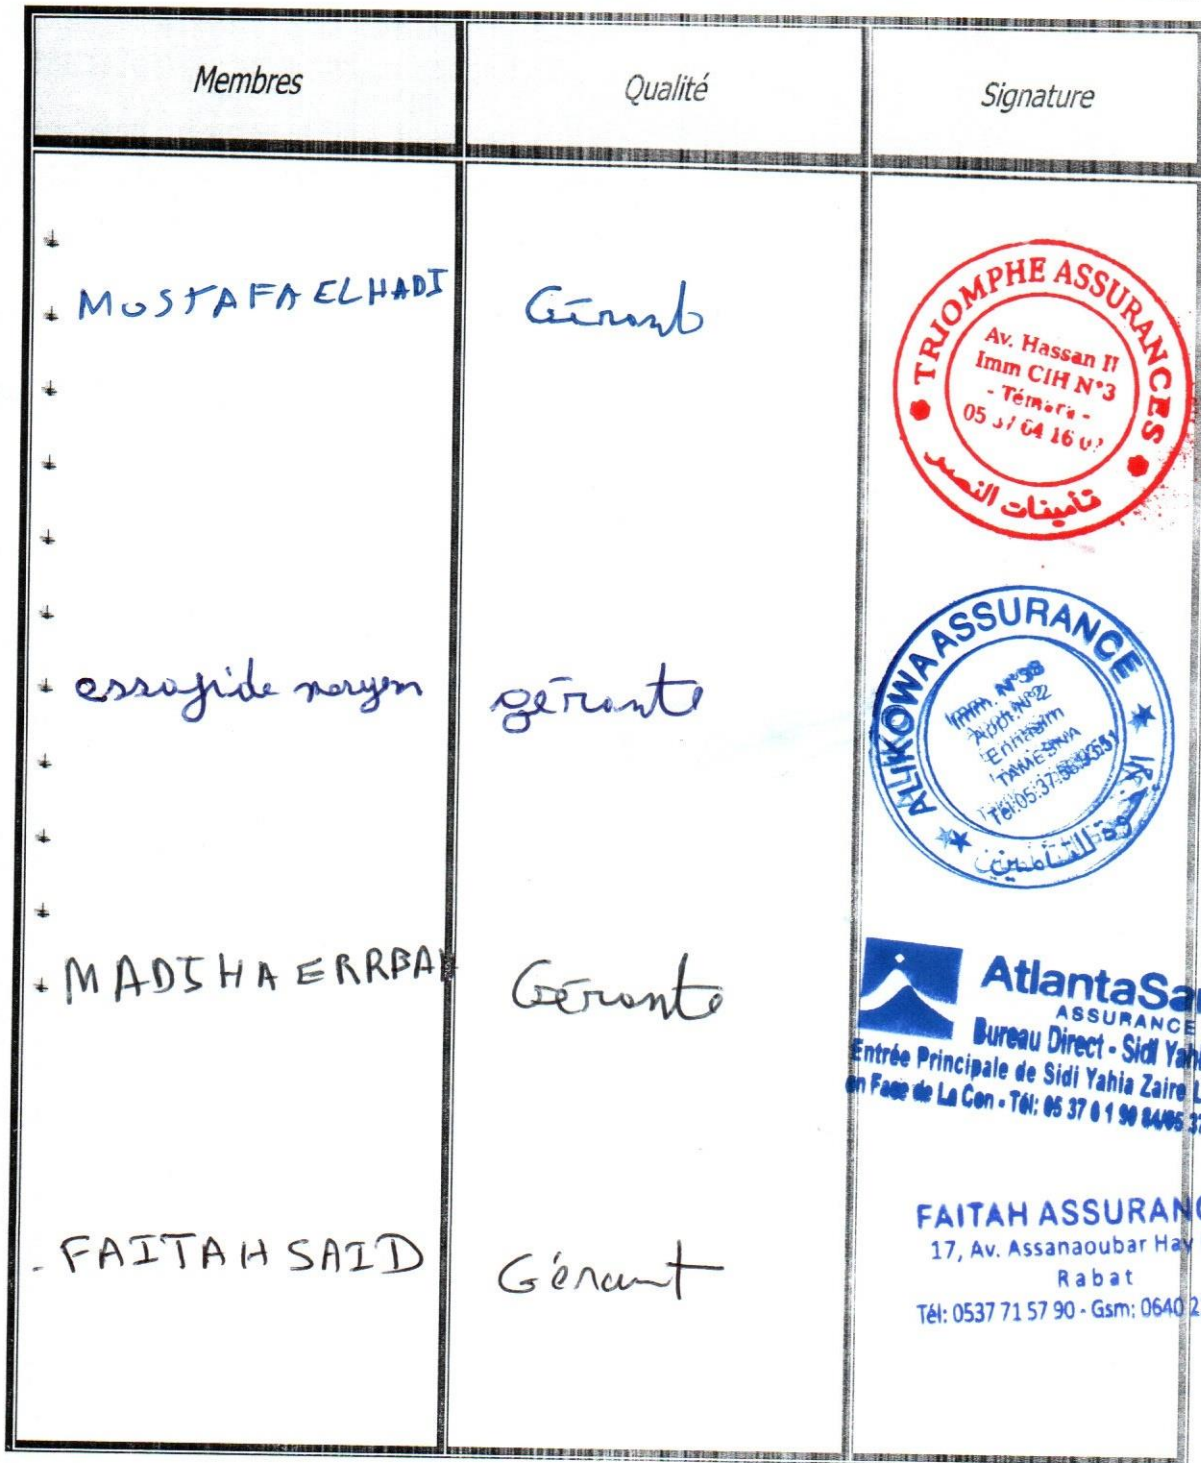 Membres Qualité Signature
MUSTAFA ELHADI Gérant
TRIOMPHE ASSURANCES
Av. Hassan II
Imm CIH N°3
- Témara -
05 37 64 16
تأمينات النصر
essafide maryem gérante
ALIKOWAASSURANCE
Imm. N°98
Appt.N°2
Ennasim
TAMESNA
Tél:05.37.56.93.51
MADIHA ERRBAH Gérante
AtlantaSa
ASSURANCE
Bureau Direct - Sidi Yah
Entrée Principale de Sidi Yahia Zaire L
en Face de La Con - Tél: 05 37 6 1 90 84/05 37
FAITAH SAID Gérant
FAITAH ASSURANC
17, Av. Assanaoubar Hay
Rabat
Tél: 0537 71 57 90 - Gsm: 0640 2